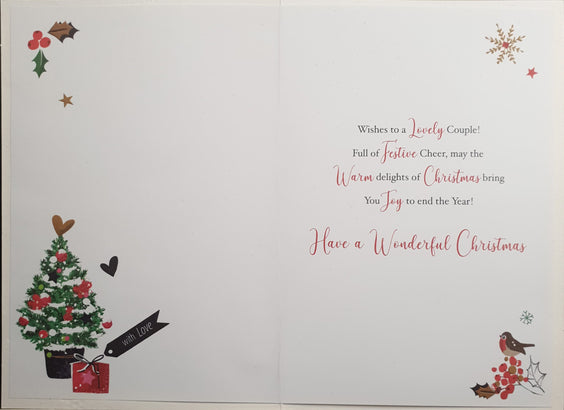 with Love
Wishes to a Lovely Couple!
Full of Festive Cheer, may the
Warm delights of Christmas bring
You Joy to end the Year!
Have a Wonderful Christmas